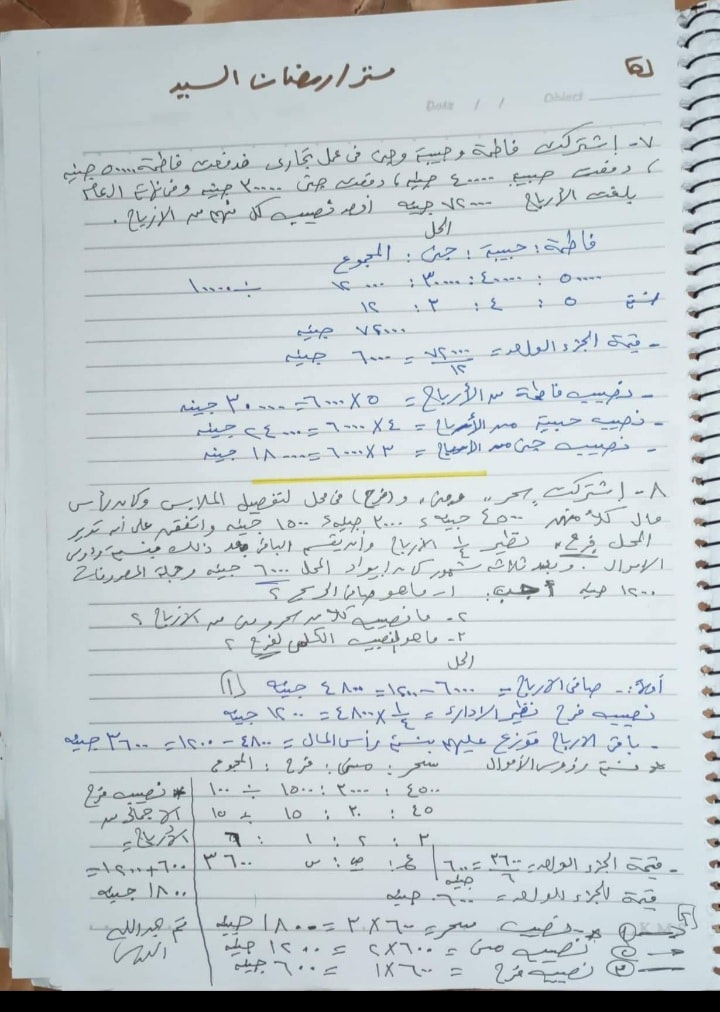 [٥]
مستر / رمضان السيد
Date / / Object
٧- إشتركت فاطمة وحبيبة وجنى فى عمل تجارى فدفعت فاطمة ٥٠٠٠٠ جنيه
، دفعت حبيبة ٤٠٠٠٠ جنيه ، دفعت جنى ٣٠٠٠٠ جنيه وفى نهاية العام
بلغت الأرباح ٧٢٠٠٠ جنيه أوجد نصيب كل منهم من الأرباح.
الحل
فاطمة : حبيبة : جنى : المجموع
٥٠٠٠٠ : ٤٠٠٠٠ : ٣٠٠٠٠ : ١٢٠٠٠٠ ÷ ١٠٠٠٠
٥ : ٤ : ٣ : ١٢
٧٢٠٠٠ جنيه
- قيمة الجزء الواحد = ٧٢٠٠٠/١٢ = ٦٠٠٠ جنيه
- نصيب فاطمة من الأرباح = ٥ × ٦٠٠٠ = ٣٠٠٠٠ جنيه
- نصيب حبيبة من الأرباح = ٤ × ٦٠٠٠ = ٢٤٠٠٠ جنيه
- نصيب جنى من الأرباح = ٣ × ٦٠٠٠ = ١٨٠٠٠ جنيه
٨- إشتركت سحر، ومنى، و(فرح) فى محل لتفصيل الملابس وكان رأس
مال كلا منهن ٤٥٠٠ جنيه، ٣٠٠٠ جنيه، ١٥٠٠ جنيه واتفقن على أن تدير
المحل فرح نظير ١/٤ الأرباح وأن يقسم الباقى بعد ذلك بنسبة رؤوس
الأموال. وبعد ثلاثة شهور كان إيراد المحل ٦٠٠٠ جنيه وجملة المصروفات
١٢٠٠ جنيه أجب: ١- ما هو صافى الربح ؟
٢- ما نصيب كلا من سحر ومنى من الأرباح ؟
٣- ما هو النصيب الكلى لفرح ؟
الحل
أولا:- صافى الأرباح = ٦٠٠٠ - ١٢٠٠ = ٤٨٠٠ جنيه (١)
نصيب فرح نظير الادارة = ١/٤ × ٤٨٠٠ = ١٢٠٠ جنيه
- باقى الأرباح توزع عليهم بنسبة رأس المال = ٤٨٠٠ - ١٢٠٠ = ٣٦٠٠ جنيه
* نسبة رؤوس الأموال سحر : منى : فرح : المجموع
٤٥٠٠ : ٣٠٠٠ : ١٥٠٠ ÷ ١٠٠
٤٥ : ٣٠ : ١٥ ÷ ١٥
٣ : ٢ : ١ : ٦
ع : ص : س ٣٦٠٠
- قيمة الجزء الواحد = ٣٦٠٠/٦ = ٦٠٠ جنيه
قيمة الجزء الواحد = ٦٠٠ جنيه
(١) نصيب سحر = ٦٠٠ × ٣ = ١٨٠٠ جنيه
(٢) نصيب منى = ٦٠٠ × ٢ = ١٢٠٠ جنيه
(٣) نصيب فرح = ٦٠٠ × ١ = ٦٠٠ جنيه
* نصيب فرح
الاجمالى من
الأرباح =
٦٠٠ + ١٢٠٠ =
١٨٠٠ جنيه
تم بحمد الله